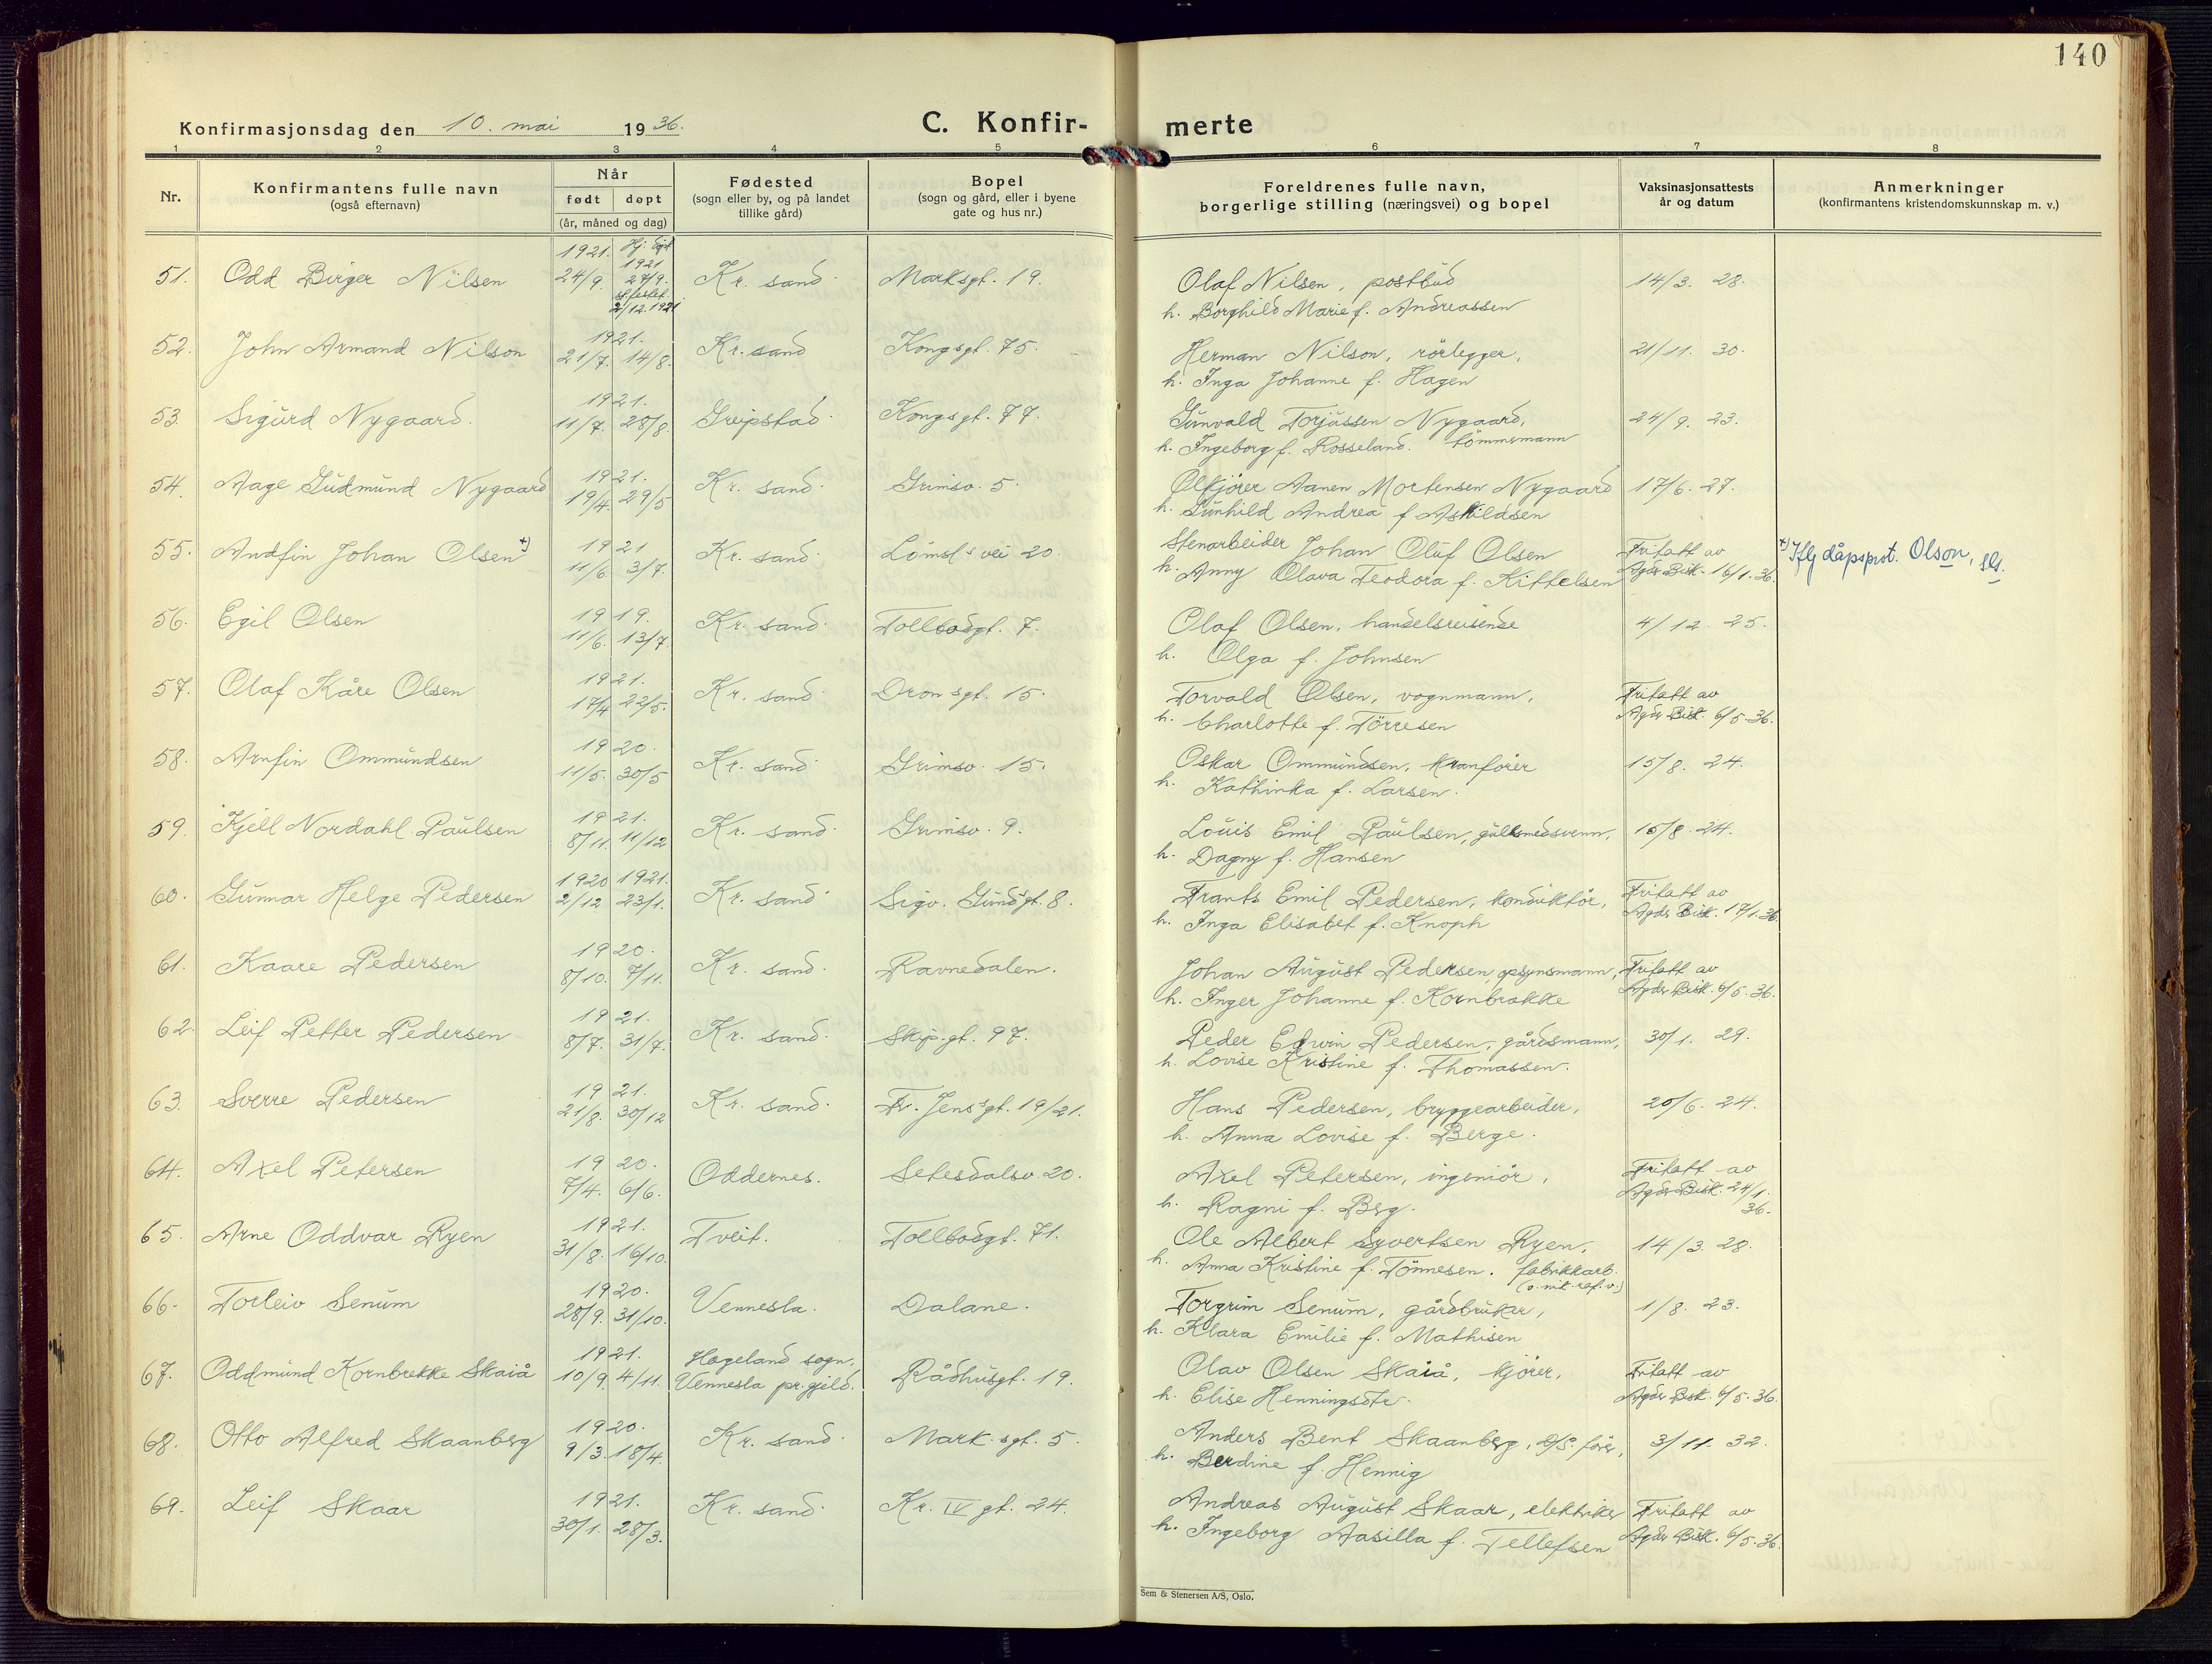 140
Konfirmasjonsdag den 10. mai 1936.
C. Konfir-
merte
1 2 3 4 5 6 7 8
Nr.
Konfirmantens fulle navn
(også efternavn)
Når
født døpt
(år, måned og dag)
Fødested
(sogn eller by, og på landet
tillike gård)
Bopel
(sogn og gård, eller i byene
gate og hus nr.)
Foreldrenes fulle navn,
borgerlige stilling (næringsvei) og bopel
Vaksinasjonsattests
år og datum
Anmerkninger
(konfirmantens kristendomskunnskap m. v.)
51. Odd Birger Nilsen 1921. 24/9. Hj. døpt 1921 27/9. st.festet 2/12.1921. Kr. sand. Marksgt. 19. Olaf Nilsen, postbud 14/3. 28.
h. Borghild Marie f. Andreassen
52. John Armand Nilson 1921. 21/7. 14/8. Kr. sand Kongsgt. 75. Herman Nilson, rörlegger, 21/11. 30.
h. Inga Johanne f. Hagen
53. Sigurd Nygaard. 1921. 11/7. 28/8. Greipstad. Kongsgt. 77. Gunvald Torjussen Nygaard, 24/9. 23.
h. Ingeborg f. Rosseland. tömmsmann
54. Aage Gudmund Nygaard 1921. 19/4. 29/5 Kr. sand. Grimsv. 5. Ölkjörer Aanen Mortensen Nygaard 17/6. 27.
h. Gunhild Andrea f Askildsen
55. Andfin Johan Olsen +) 1921 11/6. 3/7. Kr. sand. Lömsls vei 20. Stenarbeider Johan Oluf Olsen Fritatt av
h. Anny Olava Teodora f. Kittelsen Agder Bisk. 16/1. 36.
+) Iflg dåpsprot. Olson, sls.
56. Egil Olsen 1919. 11/6. 13/7. Kr. sand. Tollbodgt. 7. Olaf Olsen, handelsreisende 4/12. 25.
h. Olga f. Johnsen
57. Olaf Kåre Olsen 1921. 17/4 22/5. Kr. sand. Dronsgt. 15. Torvald Olsen, vognmann, Fritatt av
h. Charlotte f. Törresen Agder Bisk. 6/5. 36.
58. Arnfin Ommundsen 1920. 11/5. 30/5 Kr. sand. Grimsv. 15. Oskar Ommundsen, kranförer 15/8. 24.
h. Kathinka f. Larsen.
59. Kjell Nordahl Paulsen 1921. 8/11. 11/12 Kr. sand. Grimsv. 9. Louis Emil Paulsen, gullsmedsvenn, 15/8. 24.
h. Dagny f. Hansen
60. Gunnar Helge Pedersen 1920 1921. 2/12 23/1. Kr. sand. Sigv. Gundsgt. 8. Frants Emil Pedersen, konduktör, Fritatt av
h. Inga Elisabet f. Knoph Agder Bisk. 17/1. 36.
61. Kaare Pedersen 1920. 8/10. 7/11. Kr. sand. Ravnedalen. Johan August Pedersen, opsynsmann, Fritatt av
h. Inger Johanne f. Kornbrakke Agder Bisk. 6/5. 36.
62. Leif Petter Pedersen 1921. 8/7. 31/7. Kr. sand. Skip.gt. 97. Peder Edwin Pedersen, gårdsmann, 30/1. 29.
h. Lovise Kristine f. Thomassen.
63. Sverre Pedersen 1921. 21/8. 30/12 Kr. sand. Fr. Jens'gt. 19/21. Hans Pedersen, bryggearbeider, 20/6. 24.
h. Anna Lovise f. Berge.
64. Axel Petersen 1920. 7/4. 6/6. Oddernes. Setesdalsv. 20. Axel Petersen, ingeniör, Fritatt av
h. Ragni f. Berg. Agder Bisk. 24/1. 36.
65. Arne Oddvar Ryen 1921. 31/8. 16/10. Tveit. Tollbodgt. 71. Ole Albert Syvertsen Ryen, 14/3. 28.
h. Anna Kristine f. Tönnesen. fabrikkarb.
66. Torleiv Senum 1920. 28/9. 31/10. Vennesla. Dalane. Torgrim Senum, gårdbruker, 1/8. 23.
h. Klara Emilie f. Mathisen
67. Oddmund Kornbrekke Skaiå 1921. 10/9. 4/11. Hægeland sogn, Vennesla pr.gjeld. Rådhusgt. 19. Olav Olsen Skaiå, kjörer, Fritatt av
h. Elise Henningsdtr. Agder Bisk. 6/5. 36.
68. Otto Alfred Skaanberg 1920. 9/3. 18/4. Kr. sand. Mark.sgt. 5. Anders Bent Skaanberg, D/S. förer, 3/11. 32.
h. Berdine f. Hennig
69. Leif Skaar 1921. 30/1. 28/3. Kr. sand. Kr. IV gt. 24. Andreas August Skaar, elektriker Fritatt av
h. Ingeborg Aasilla f. Tellefsen Agder Bisk. 6/5. 36.
Sem & Stenersen A/S, Oslo.